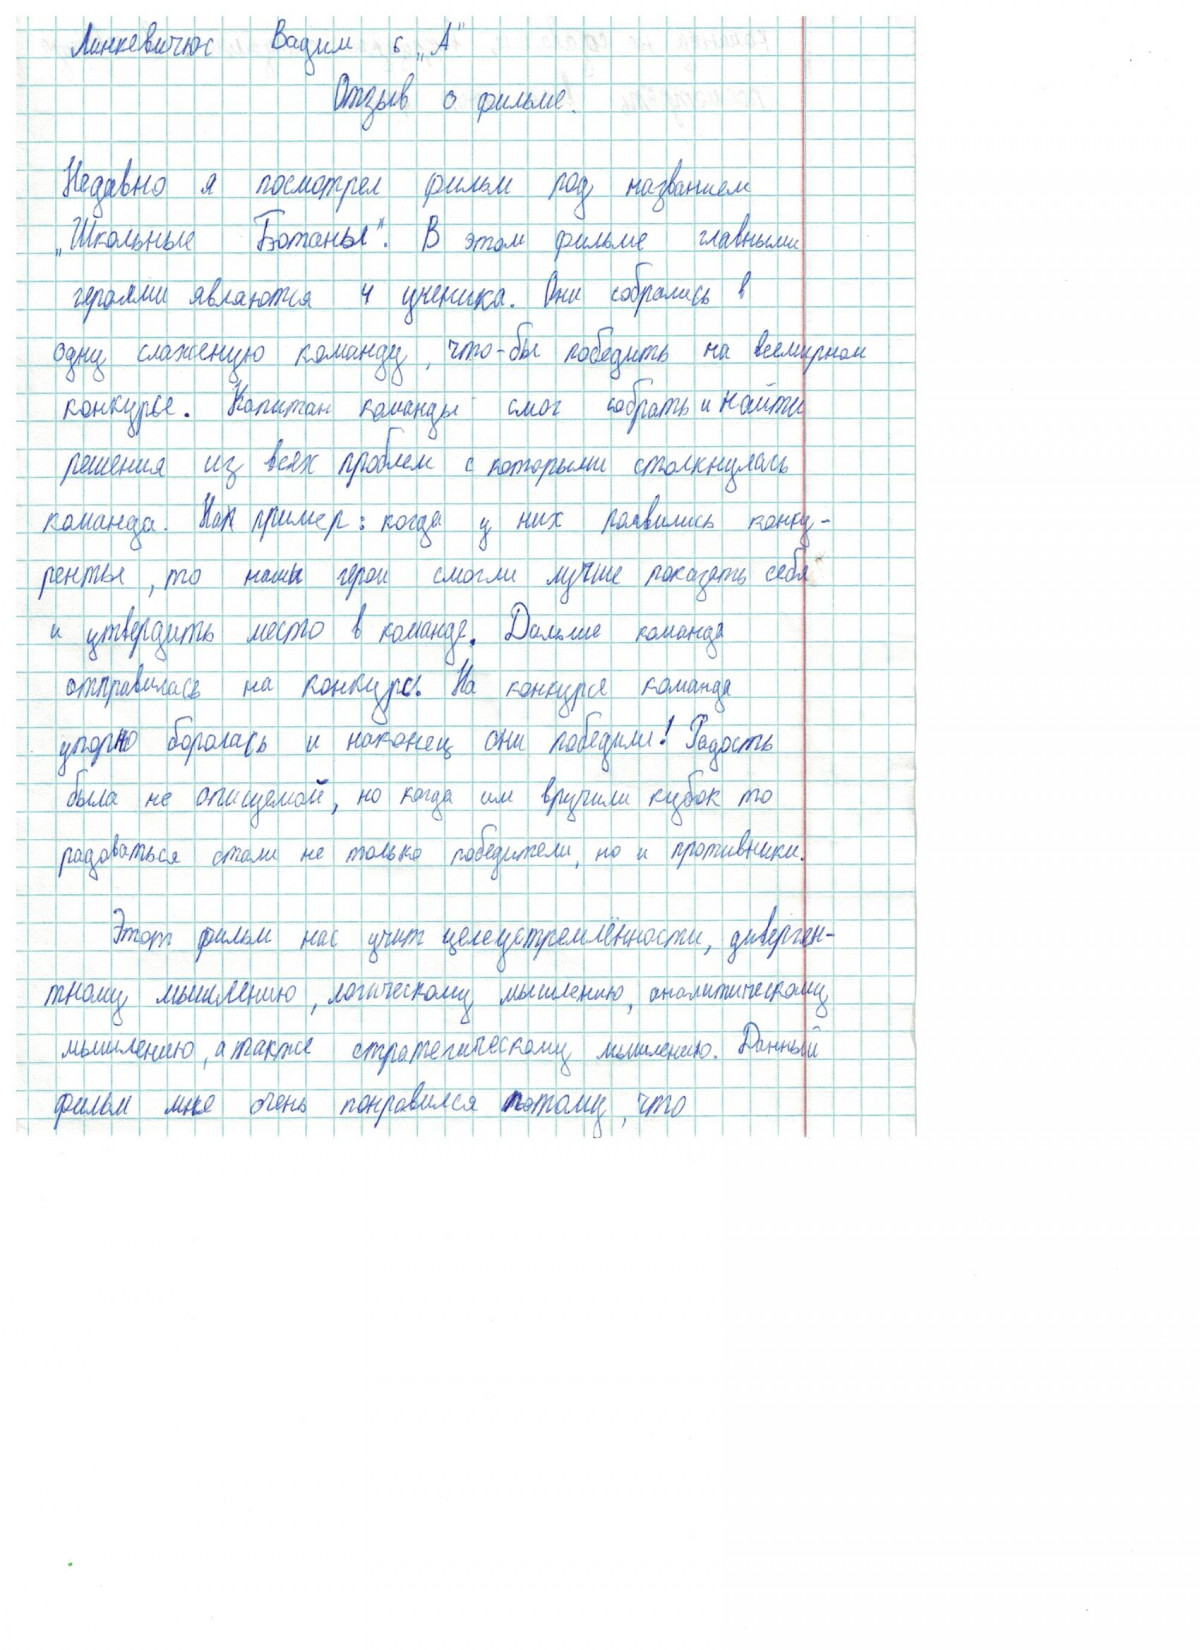 Линкевичюс Вадим 6 „А"
Отзыв о фильме.
Недавно я посмотрел фильм под названием
„Школьные Ботаны". В этом фильме главными
героями являются 4 ученика. Они собрались в
одну слаженую команду, что-бы победить на всемирном
конкурсе. Капитан команды смог собрать и найти
решения из всех проблем с которыми столкнулась
команда. На пример: когда у них появились конку-
ренты, то наши герои смогли лучше показать себя
и утвердить место в команде. Дальше команда
отправилась на конкурс. На конкурсе команда
упорно боролась и наконец они победили! Радость
была не описуемой, но когда им вручили кубок то
радоваться стали не только победители, но и противники.
Этот фильм нас учит целеустремлённости, диверген-
тному мышлению, логическому мышлению, аналитическому
мышлению, а также стратегическому мышлению. Данный
фильм мне очень понравился потому, что